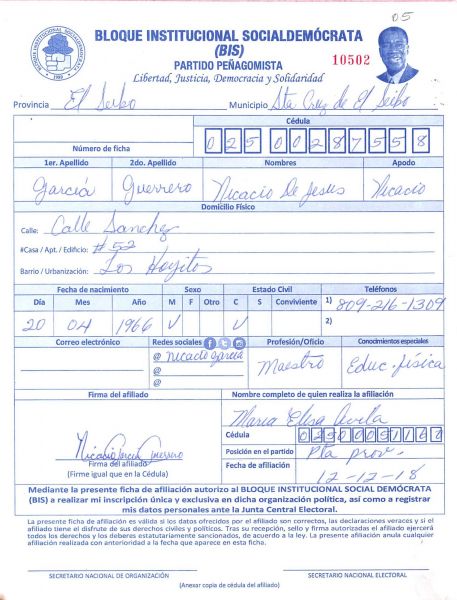 05
BLOQUE INSTITUCIONAL SOCIALDEMÓCRATA
(BIS)
PARTIDO PEÑAGOMISTA
10502
Libertad, Justicia, Democracia y Solidaridad
Provincia El Seibo Municipio Sta Cruz de El Seibo
Cédula
Número de ficha 025 0028755 8
1er. Apellido 2do. Apellido Nombres Apodo
García Guerrero Nicacio De Jesus Nicacio
Domicilio Físico
Calle: Calle Sanchez
#Casa / Apt. / Edificio: # 52
Barrio / Urbanización: Los Hoyitos
Fecha de nacimiento Sexo Estado Civil Teléfonos
Día Mes Año M F Otro C S Conviviente 1) 809-216-1309
20 04 1966 V V 2)
Correo electrónico Redes sociales Profesión/Oficio Conocimientos especiales
@ nicacio garcía Maestro Educ. física
@
@
Firma del afiliado Nombre completo de quien realiza la afiliación
Maria Elisa Avila
Cédula
Nicacio García Guerrero Posición en el partido Pta prov.
Firma del afiliado Fecha de afiliación 12-12-18
(Firme igual que en la Cédula)
Mediante la presente ficha de afiliación autorizo al BLOQUE INSTITUCIONAL SOCIAL DEMÓCRATA
(BIS) a realizar mi inscripción única y exclusiva en dicha organización política, así como a registrar
mis datos personales ante la Junta Central Electoral.
La presente ficha de afiliación es válida si los datos ofrecidos por el afiliado son correctos, las declaraciones veraces y si el
afiliado tiene el disfrute de sus derechos civiles y políticos. Tras su recepción, sello y firma autorizadas el afiliado ejercerá
todos los derechos y los deberes estatutariamente sancionados, de acuerdo a la ley. La presente afiliación anula cualquier
afiliación realizada con anterioridad a la fecha que aparece en esta ficha.
SECRETARIO NACIONAL DE ORGANIZACIÓN SECRETARIO NACIONAL ELECTORAL
(Anexar copia de cédula del afiliado)